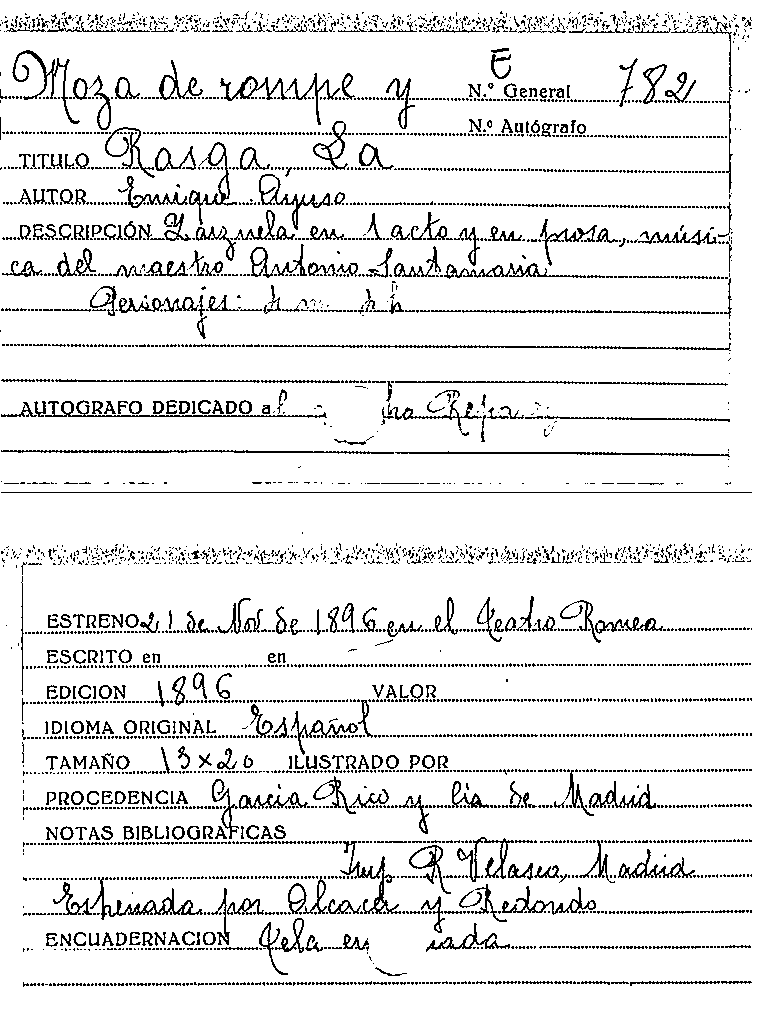 Moza de rompe y E
N.º General 782
N.º Autógrafo
TITULO Rasga, La
AUTOR Enrique Ayuso
DESCRIPCIÓN Zarzuela en 1 acto y en prosa, músi-
ca del maestro Antonio Santamaria
Personajes:
AUTOGRAFO DEDICADO al
ESTRENO 21 de Nov de 1896 en el Teatro Romea
ESCRITO en en
EDICION 1896 VALOR
IDIOMA ORIGINAL Español
TAMAÑO 13 x 20 ILUSTRADO POR
PROCEDENCIA Garcia Rico y Cia de Madrid
NOTAS BIBLIOGRAFICAS
Imp. R Velasco, Madrid
Estrenada por Alcacer y Redondo
ENCUADERNACION Tela